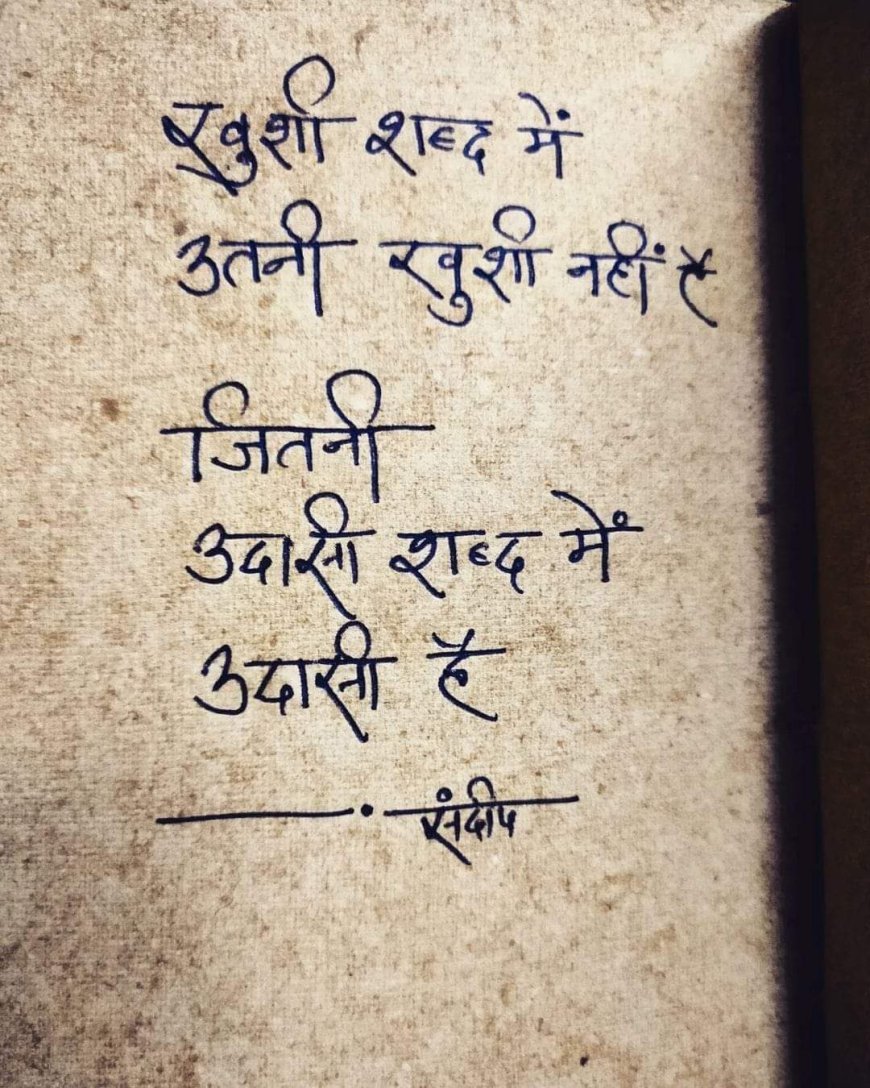 खुशी शब्द में
उतनी खुशी नहीं है
जितनी
उदासी शब्द में
उदासी है
———.——— संदीप